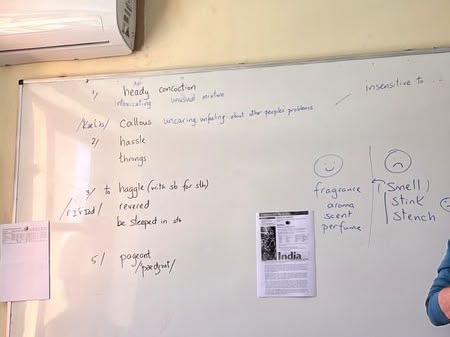 1/ heady concoction
intoxicating unusual mixture
insensitive to
/kæləs/ callous uncaring unfeeling about other people's problems
2/ hassle
throngs
3/ to haggle (with sb for sth)
revered
be steeped in sth
fragrance
aroma
scent
perfume
smell
stink
stench
India
5/ pageant
/pædʒənt/